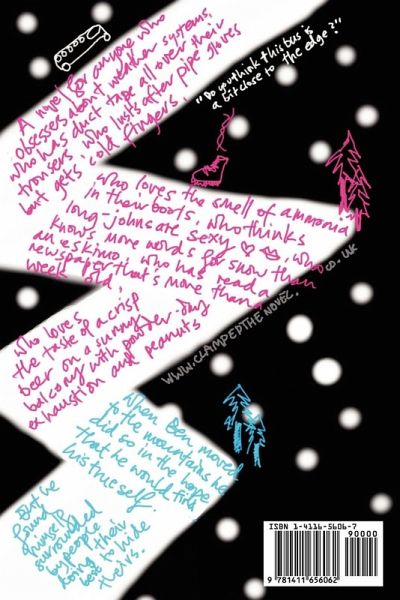 A novel for anyone who
obsesses about weather systems,
who has duct tape all over their
trousers, who lusts after pipe gloves
but gets cold fingers,
"Do you think this bus is
a bit close to the edge?"
who loves the smell of ammonia
in their boots, who thinks
long-johns are sexy
knows more words for snow than
an eskimo, who has read a
newspaper that's more than a
week old,
who loves
the taste of a crisp
beer on a sunny
balcony with powder-day
exhaustion and peanuts
WWW.CLAMPEDTHENOVEL.CO.UK
When Ben moved
to the mountains he
did so in the hope
that he would find
his true self.
But he
found
himself
surrounded
by people
doing their
best to hide
theirs.
ISBN 1-4116-5606-7
90000
9 781411 656062